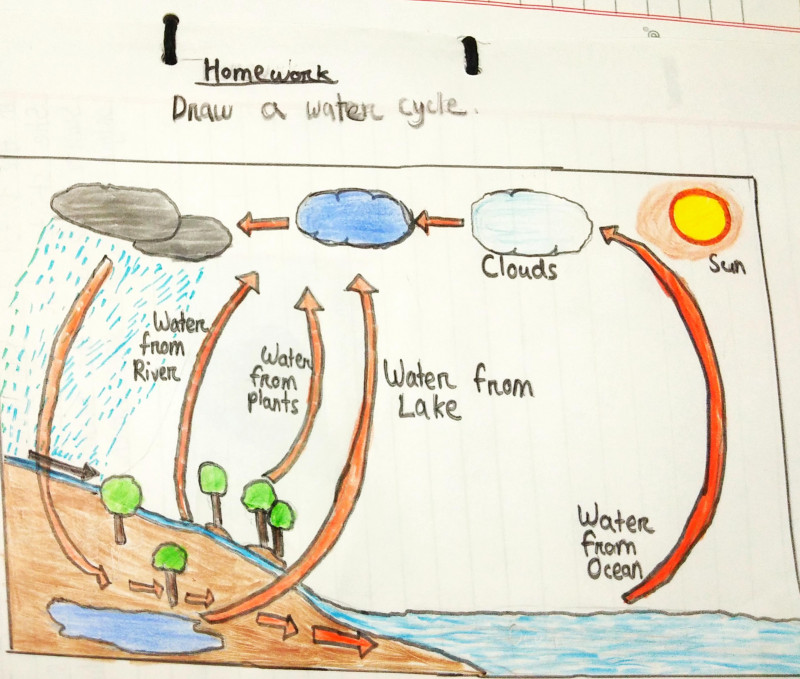 Homework
Draw a water cycle.
Clouds
Sun
Water
from
River
Water
from
plants
Water from
Lake
Water
from
Ocean